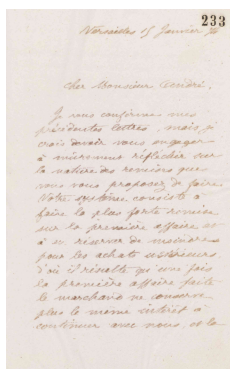 233
Versailles 15 Janvier
Cher Monsieur André,
Je vous confirme mes
précédentes lettres, mais je
crois devoir vous engager
à mûrement réfléchir sur
la nature des remises que
vous vous proposez de faire
Notre système consiste à
faire la plus forte remise
sur la première affaire et
à en réserver de moindres
pour les achats ultérieurs
d'où il résulte qu'une fois
la première affaire faite
le marchand ne conserve
plus le même intérêt à
continuer avec nous, et la